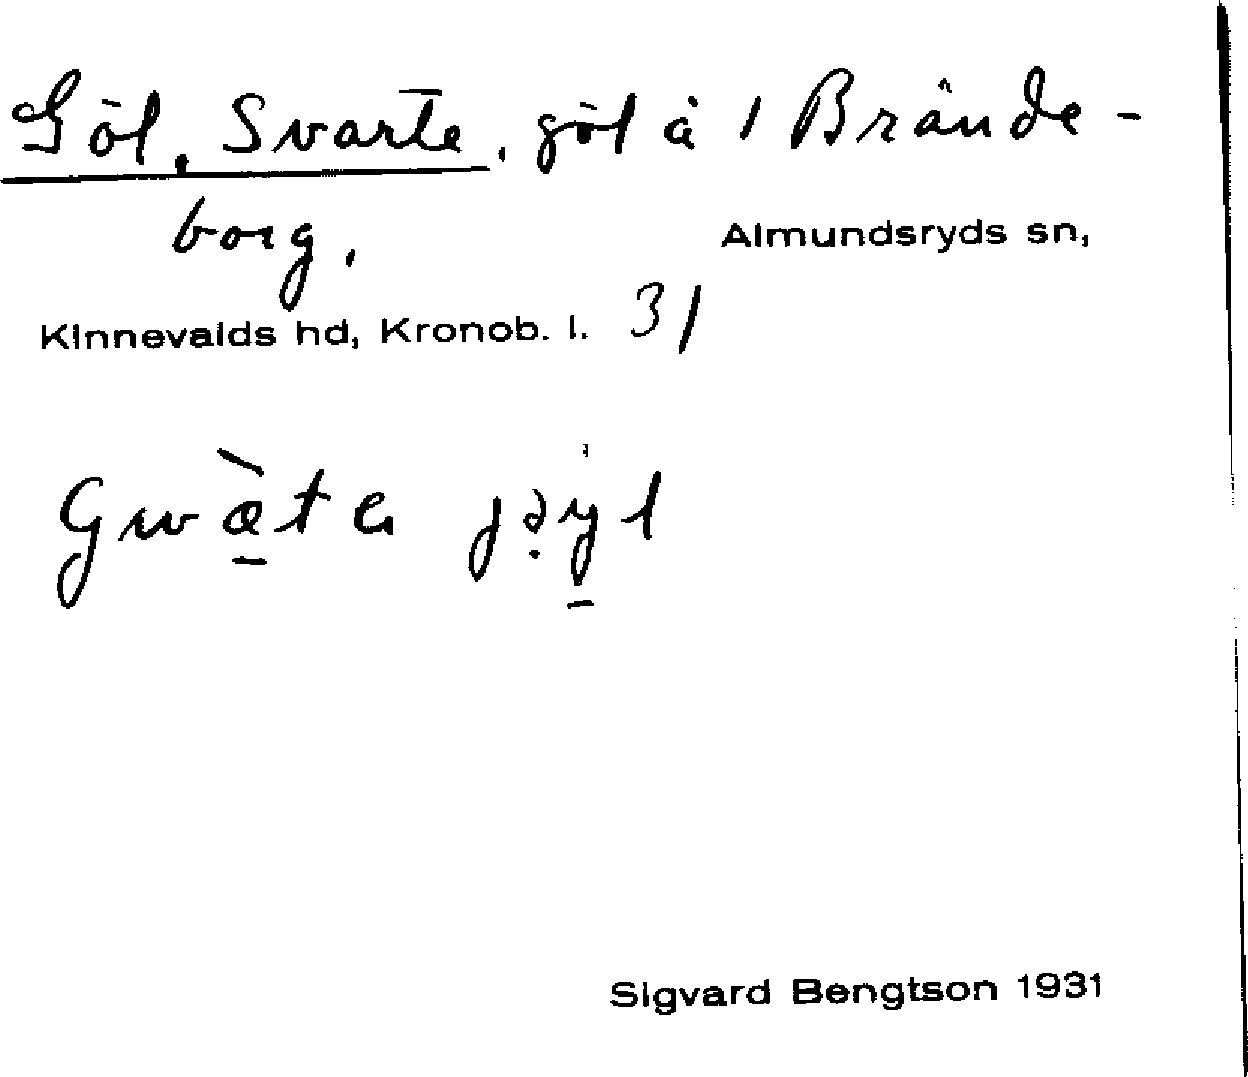 Göl, Svarte, göl å 1 Brände-
borg.
Almundsryds sn,
Kinnevalds hd, Kronob. l. 31
Sigvard Bengtson 1931